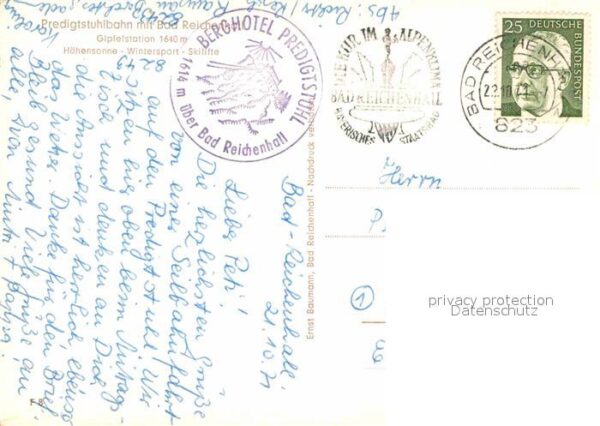 Predigtstuhlbahn mit Bad Reichenhall
Gipfelstation 1640 m
Höhensonne - Wintersport - Skilifte
BERGHOTEL PREDIGTSTUHL
1614 m über Bad Reichenhall
KUR IM ALPENKLIMA
BAD REICHENHALL
BAYERISCHES STAATSBAD
25
DEUTSCHE
BUNDESPOST
BAD REICHENHALL
22.10.71
823
Abs:
Bad-Reichenhall,
21.10.71
Liebe Peti!
Die herzlichsten Grüße
von einer Seilbahnfahrt
auf den Predigtstuhl. Wir
sitzen hier oben beim Mittags-
und denken an Dich
die Aussicht ist herrlich, ebenso
das Danke für den Brief
Bleib gesund Viele Grüße an
alle,
Ernst Baumann, Bad Reichenhall - Nachdruck verboten
F 8
Herrn
P
1
privacy protection
Datenschutz